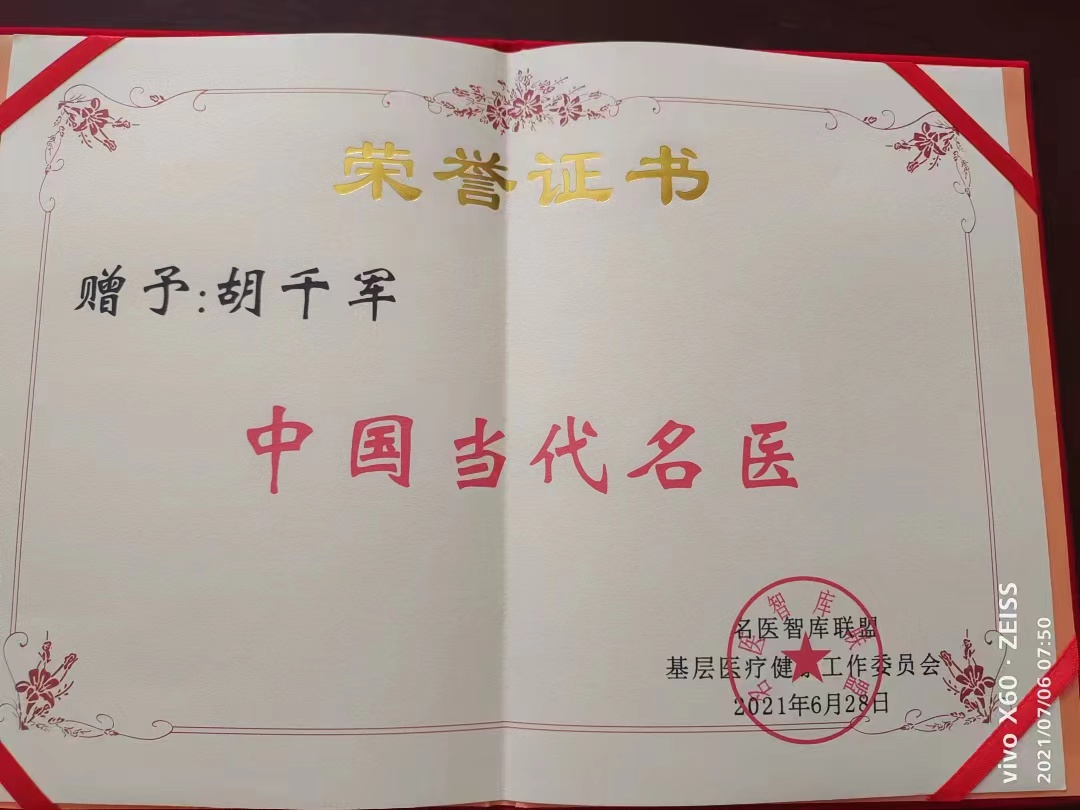 荣誉证书
赠予:胡千军
中国当代名医
名医智库联盟
名医智库联盟
基层医疗健康工作委员会
2021年6月28日
vivo X60 · ZEISS
2021/07/06 07:50